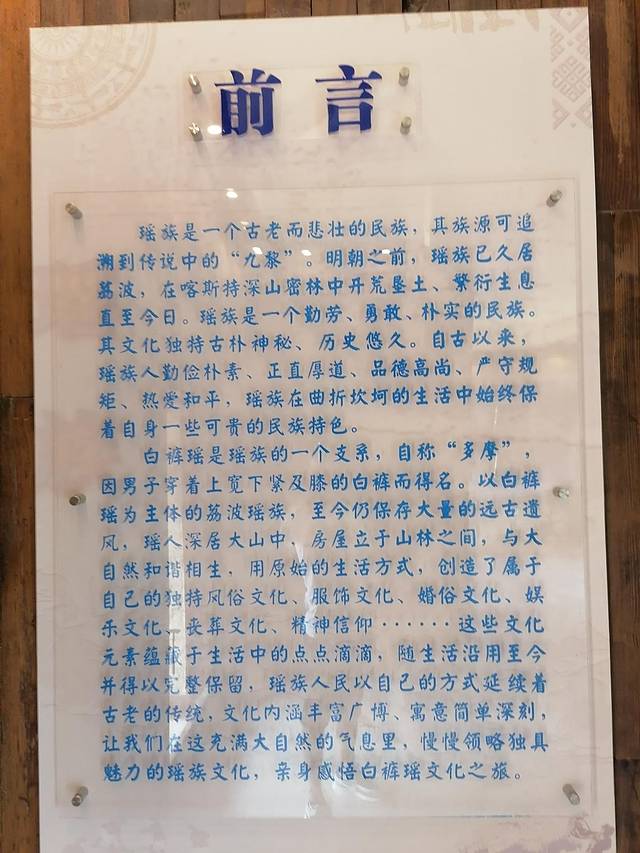 前言
瑶族是一个古老而悲壮的民族，其族源可追
溯到传说中的“九黎”。明朝之前，瑶族已久居
荔波，在喀斯特深山密林中开荒垦土、繁衍生息
直至今日。瑶族是一个勤劳、勇敢、朴实的民族。
其文化独特古朴神秘、历史悠久。自古以来，
瑶族人勤俭朴素、正直厚道、品德高尚、严守规
矩、热爱和平，瑶族在曲折坎坷的生活中始终保
着自身一些可贵的民族特色。
白裤瑶是瑶族的一个支系，自称“多摩”，
因男子穿着上宽下紧及膝的白裤而得名。以白裤
瑶为主体的荔波瑶族，至今仍保存大量的远古遗
风，瑶人深居大山中，房屋立于山林之间，与大
自然和谐相生，用原始的生活方式，创造了属于
自己的独特风俗文化、服饰文化、婚俗文化、娱
乐文化、丧葬文化、精神信仰······这些文化
元素蕴藏于生活中的点点滴滴，随生活沿用至今
并得以完整保留，瑶族人民以自己的方式延续着
古老的传统，文化内涵丰富广博、寓意简单深刻，
让我们在这充满大自然的气息里，慢慢领略独具
魅力的瑶族文化，亲身感悟白裤瑶文化之旅。